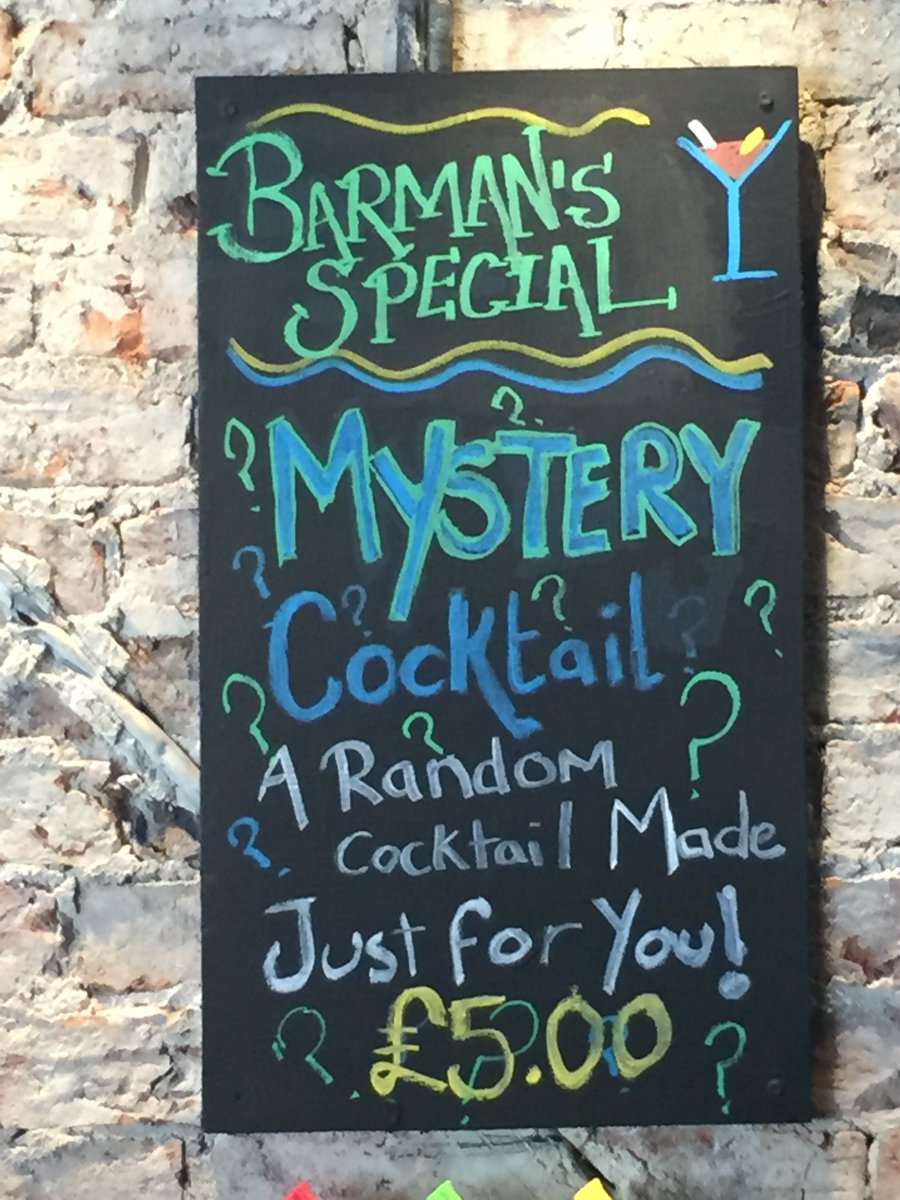 BARMAN'S
SPECIAL
MYSTERY
Cocktail
A Random
Cocktail Made
Just for You!
£5.00